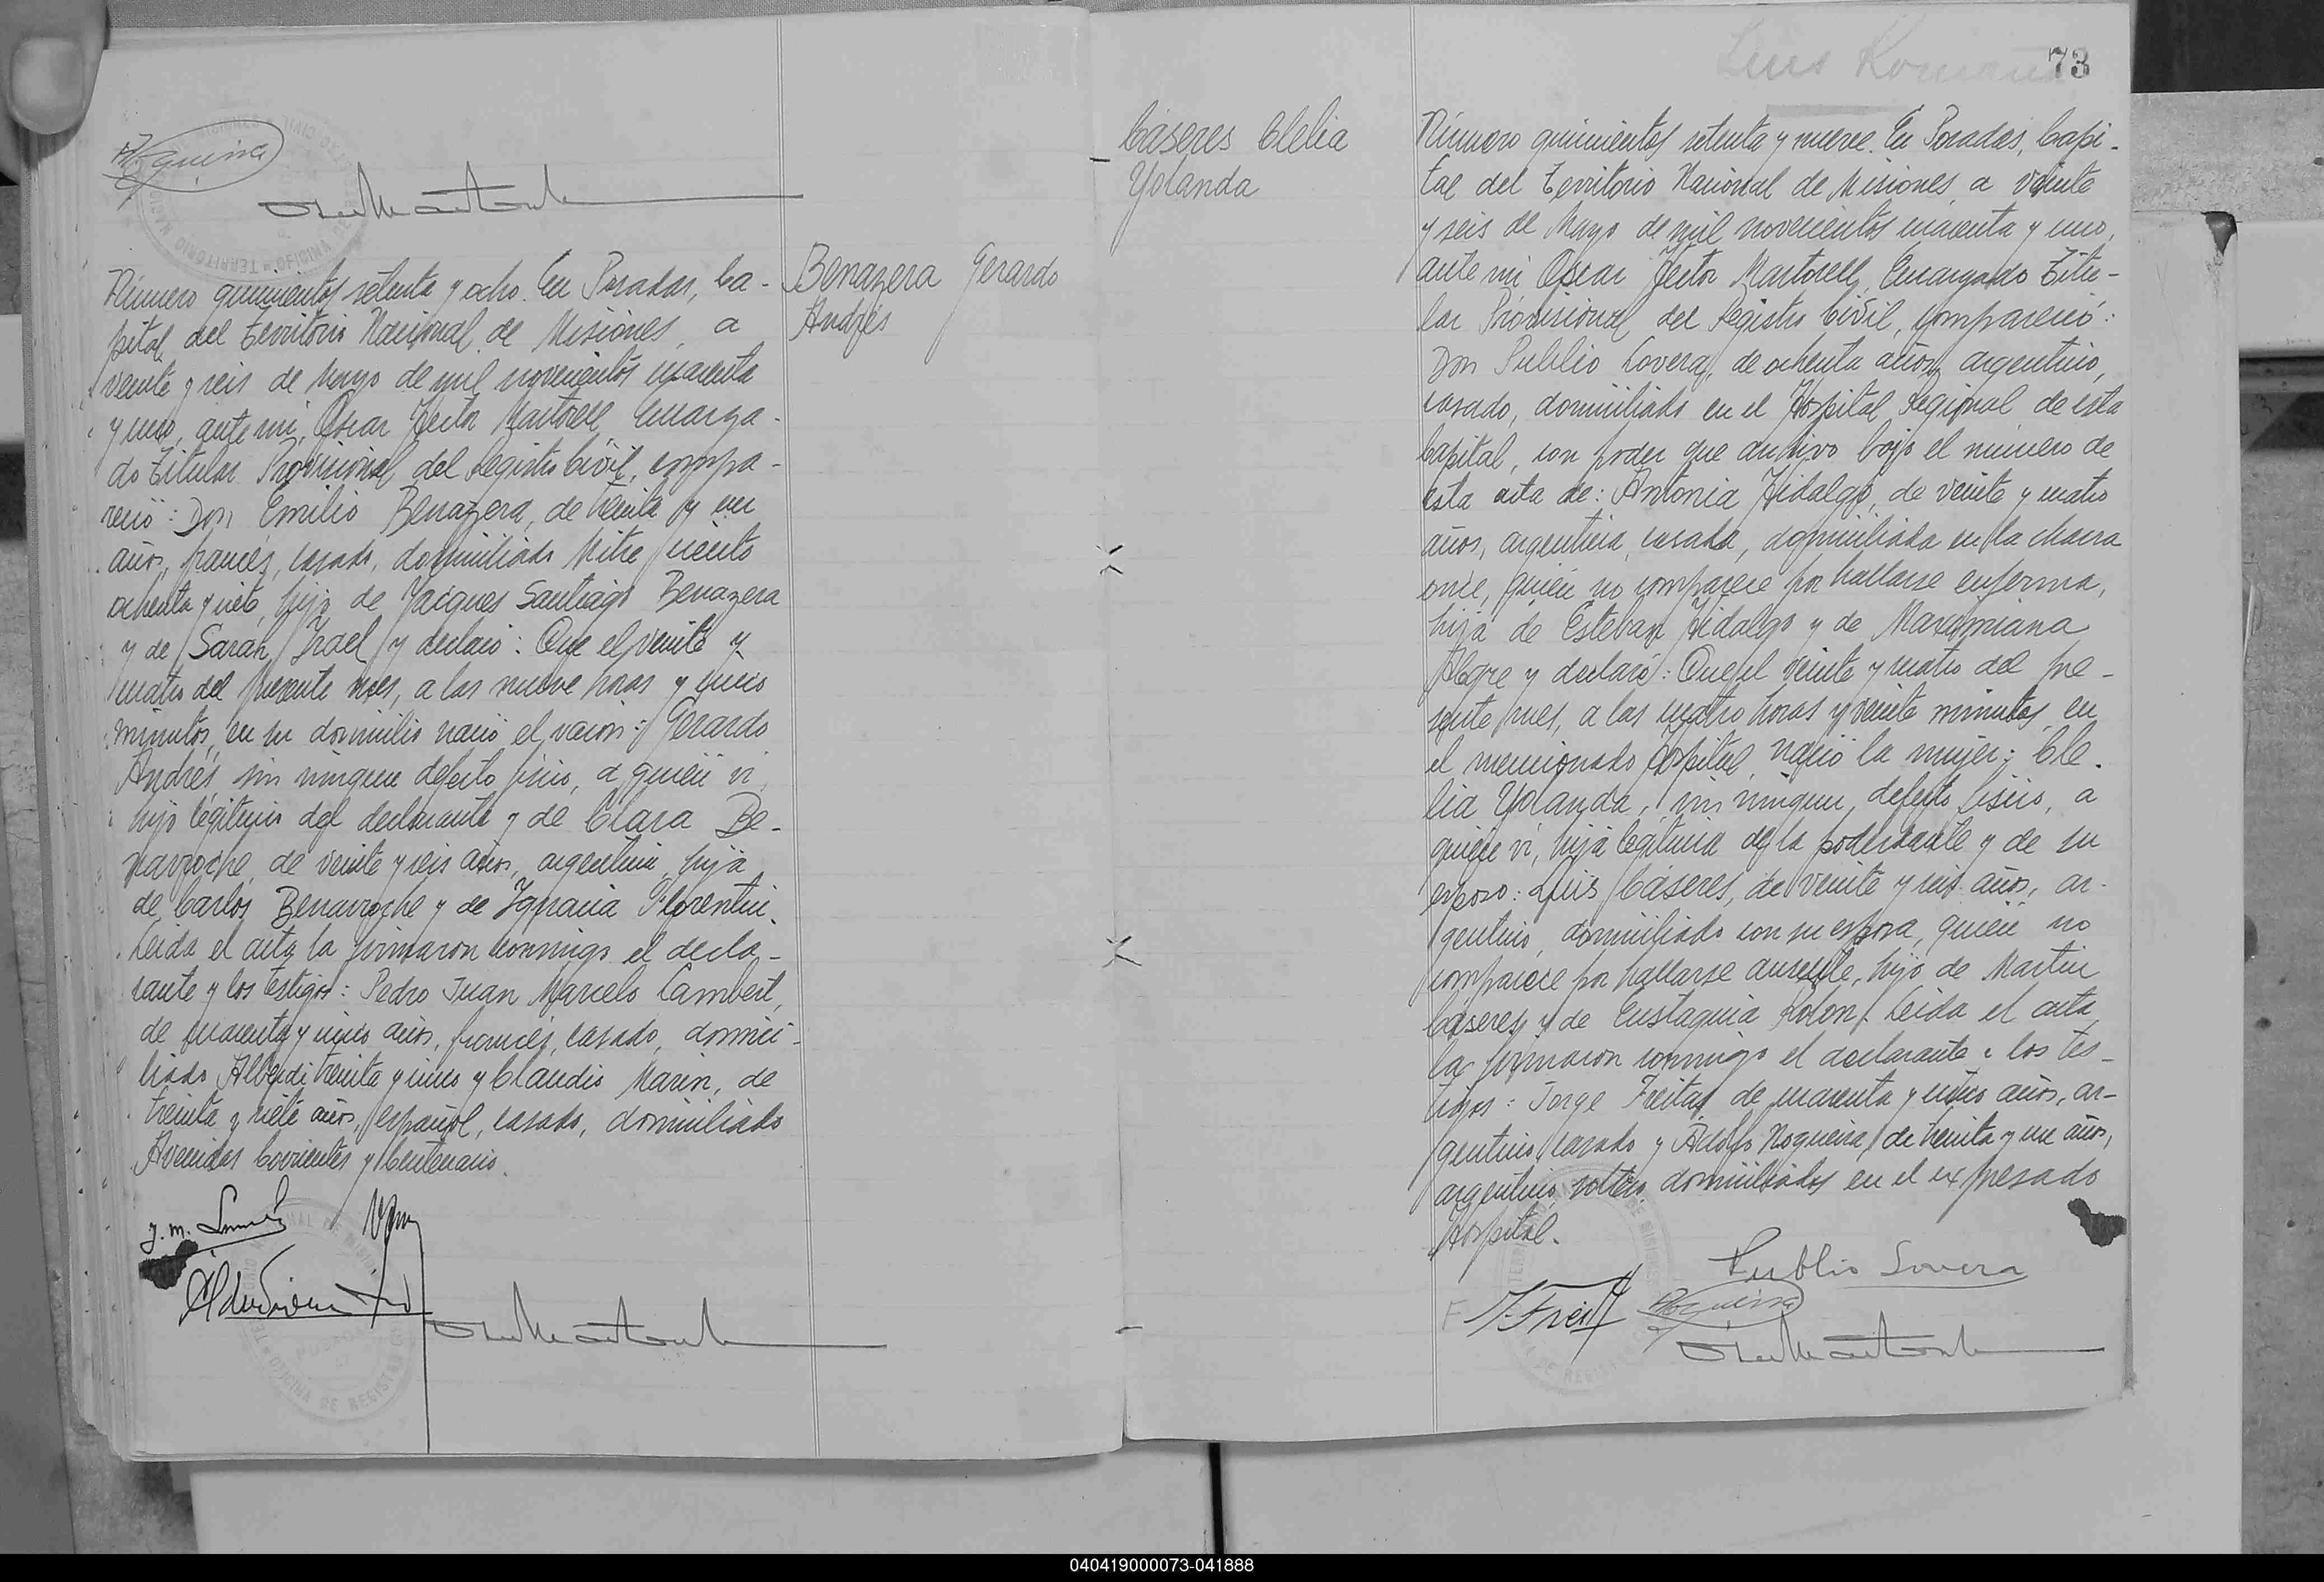 Número quinientos setenta y ocho. En Posadas, Ca-
pital del Territorio Nacional de Misiones, a
veinte y seis de Mayo de mil novecientos cuarenta
y uno, ante mi, Oscar Hector Martorell Encarga-
do Titular Provisional del Registro Civil, compa-
reció: Don Emilio Benazera, de treinta y un
años, francés, casado, domiciliado Mitre ciento
ochenta y siete, hijo de Jacques Santiago Benazera
y de Sarah Israel y declaró: Que el veinte y
cuatro del presente mes, a las nueve horas y cinco
minutos, en su domicilio nació el varón: Gerardo
Andrés, sin ningun defecto fisico, a quien vi,
hijo legitimo del declarante y de Clara Be-
narroche, de veinte y seis años, argentina, hija
de Carlos Benarroche y de Ignacia Florentin.
Leida el acta la firmaron conmigo el decla-
rante y los testigos: Pedro Juan Marcelo Lambert,
de cuarenta y cinco años, francés, casado, domici-
liado Alberdi treinta y cinco y Claudio Marin, de
treinta y siete años, español, casado, domiciliado
Avenidas Corrientes y Centenario.
Benazera Gerardo
Andrés
73
Cáseres Clelia
Yolanda
Número quinientos setenta y nueve. En Posadas, Capi-
tal del Territorio Nacional de Misiones, a veinte
y seis de Mayo de mil novecientos cuarenta y uno,
ante mi Oscar Hector Martorell, Encargado Titu-
lar Provisional del Registro Civil, compareció:
Don Publio Lovera, de ochenta años, argentino,
casado, domiciliado en el Hospital Regional de esta
Capital, con poder que archivo bajo el número de
esta acta de: Antonia Hidalgo, de veinte y cuatro
años, argentina, casada, domiciliada en la chacra
once, quien no comparece por hallarse enferma,
hija de Esteban Hidalgo y de Maximiana
Alegre y declaró: Que el veinte y cuatro del pre-
sente mes, a las cuatro horas y veinte minutos, en
el mencionado Hospital, nació la mujer: Cle-
lia Yolanda, sin ningun defecto fisico, a
quien vi, hija legitima de la poderdante y de su
esposo: Luis Cáseres, de veinte y seis años, ar-
gentino, domiciliado con su esposa, quien no
comparece por hallarse ausente, hijo de Martin
Cáseres y de Eustaquia Rolon. Leida el acta
la firmaron conmigo el declarante y los tes-
tigos: Jorge Freitas de cuarenta y cinco años, ar-
gentino, casado y Adolfo Nogueira, de treinta y un años,
argentino, soltero, domiciliados en el expresado
Hospital.
Publio Lovera
040419000073-041888